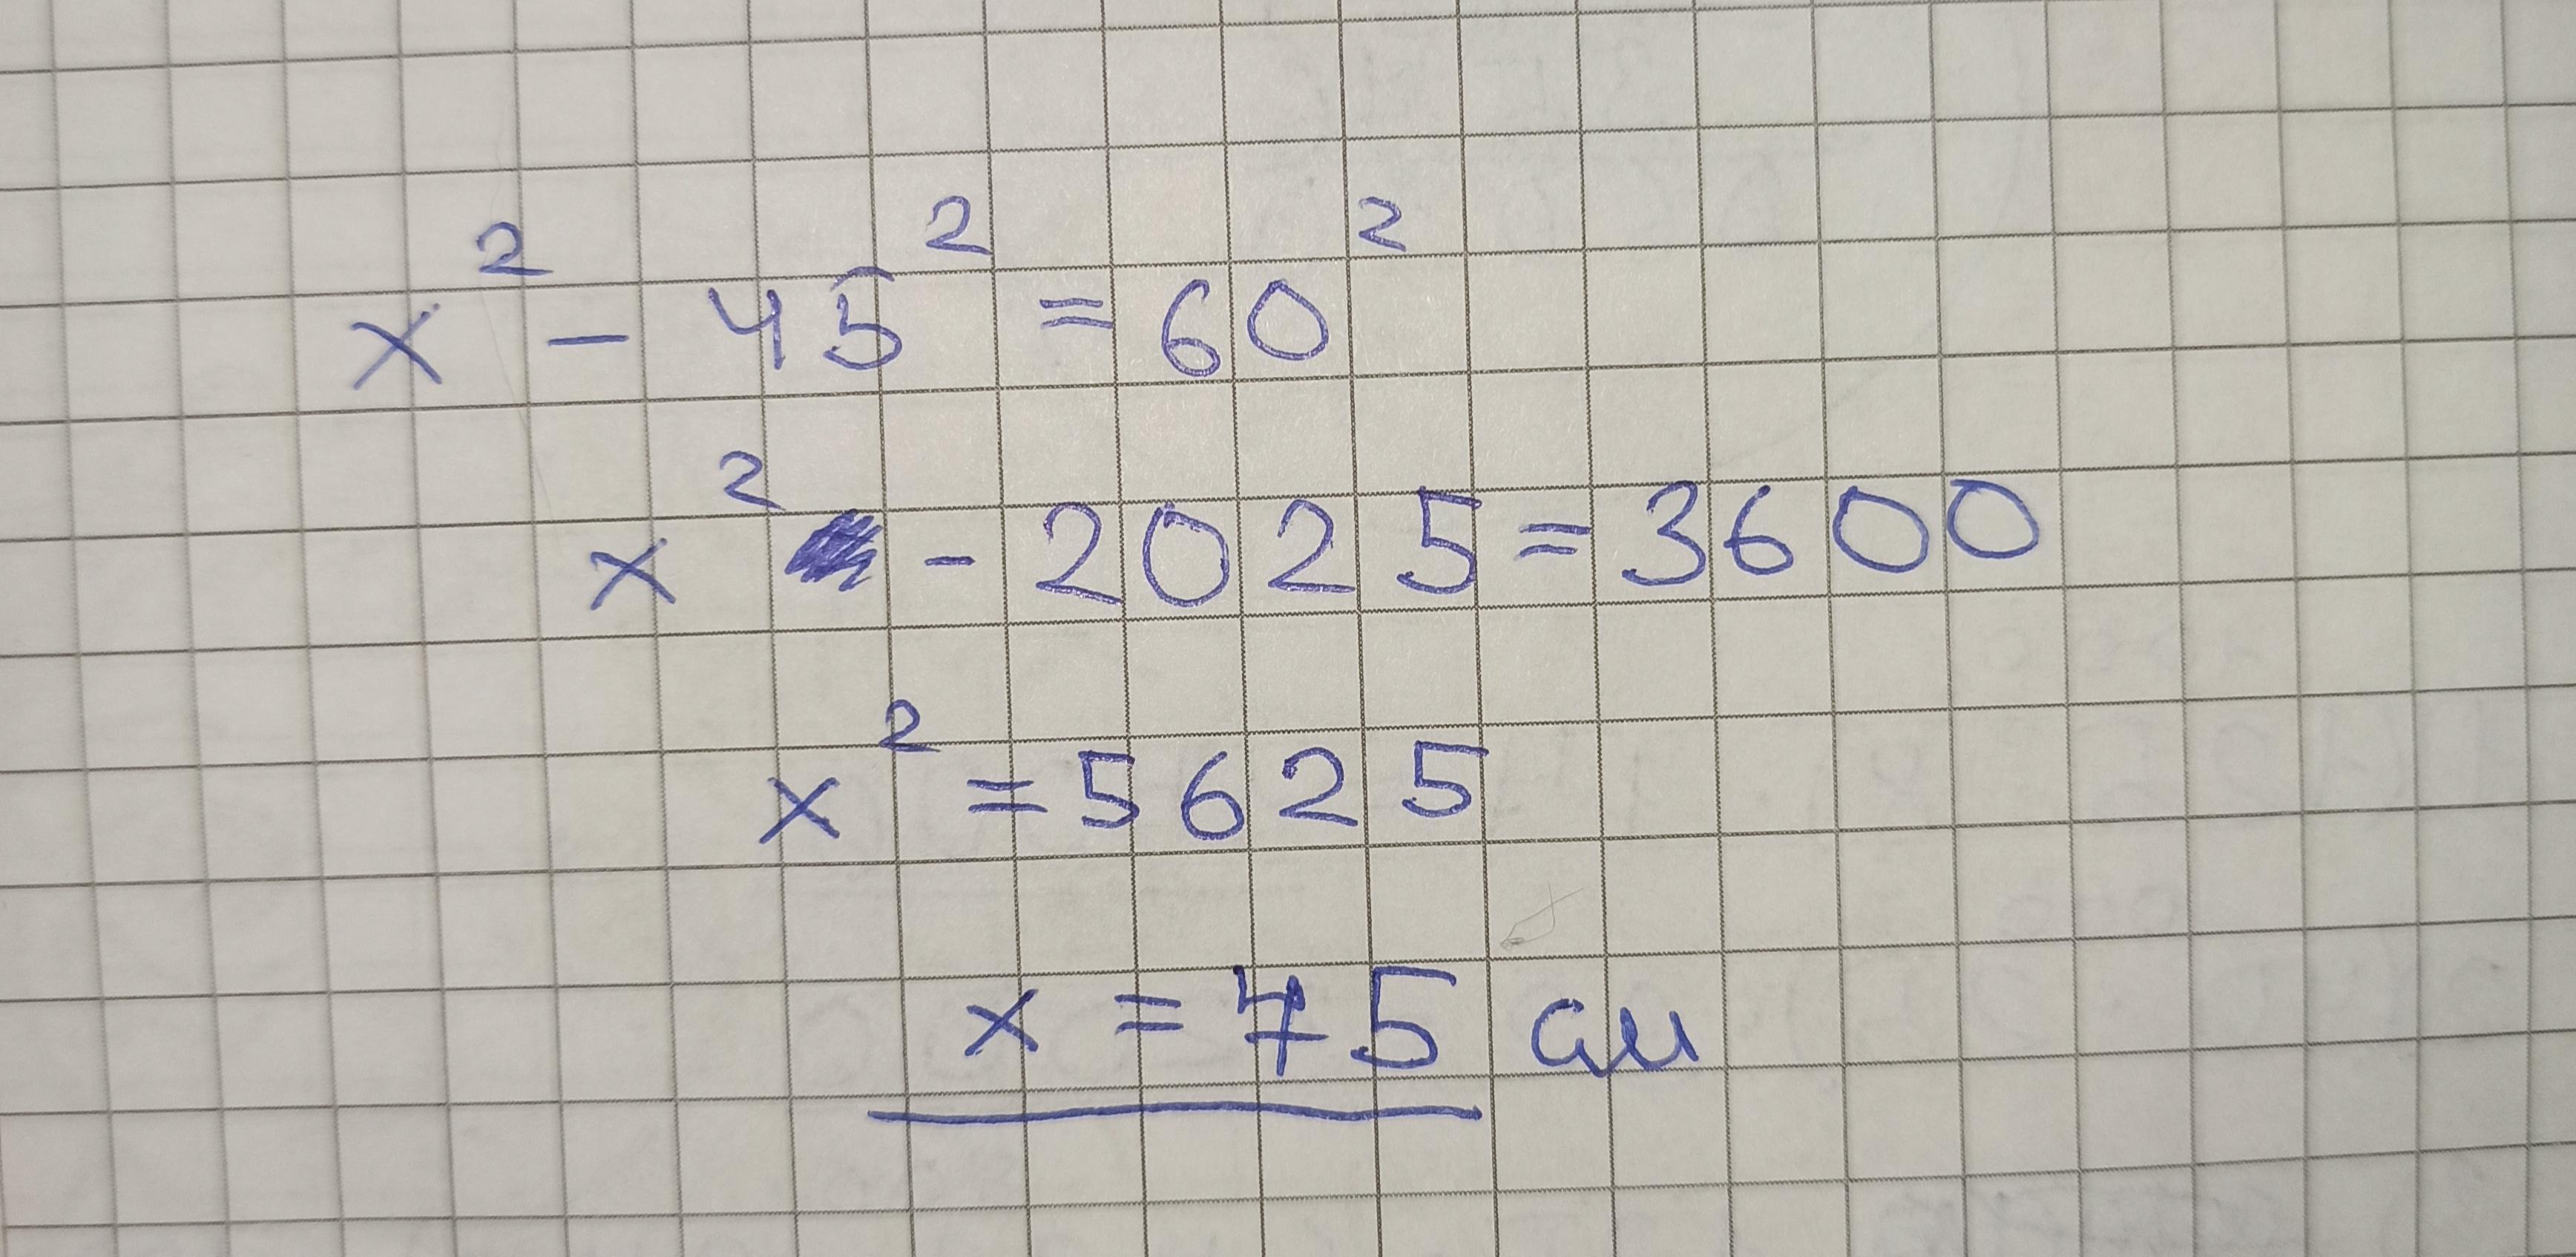 x² - 45² = 60²
x² - 2025 = 3600
x² = 5625
x = 75 см